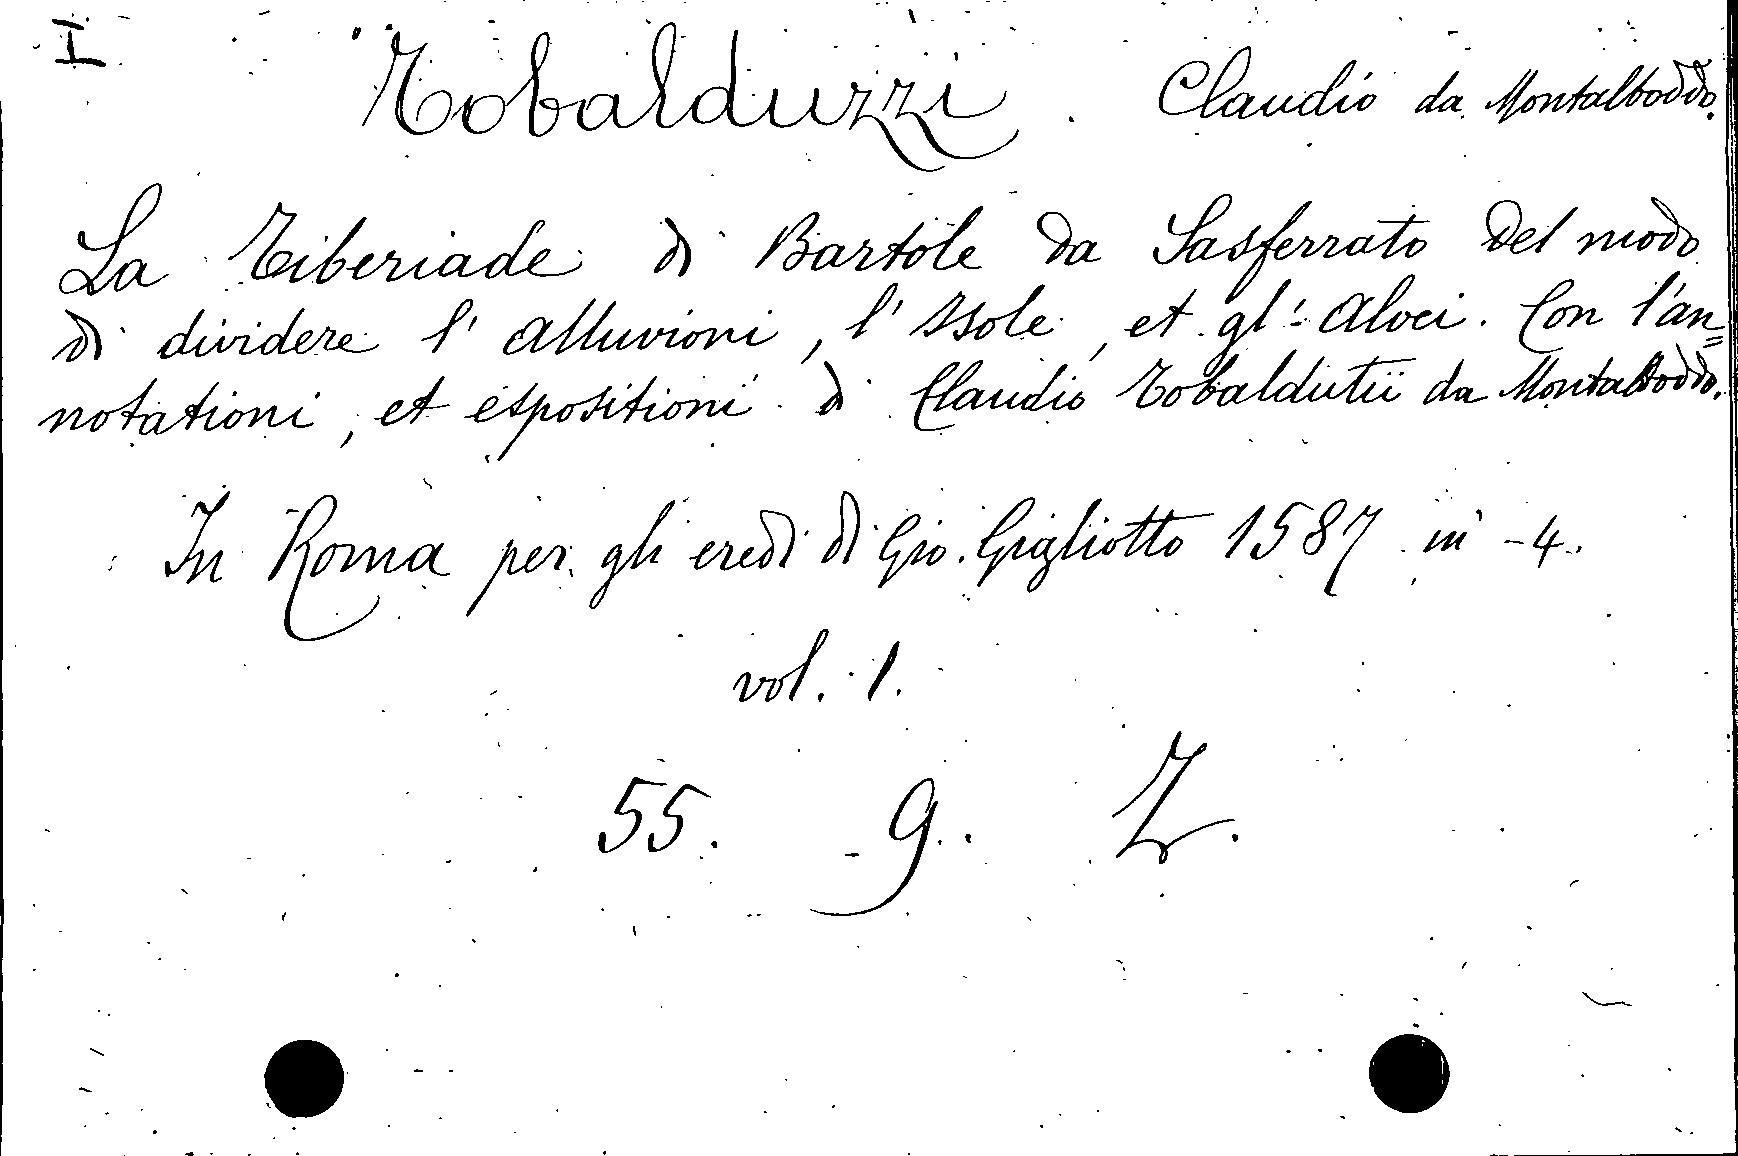 I
Tobalduzzi. Claudio da Montalboddo.
La Tiberiade di Bartole da Sasferrato del modo
di dividere l' alluvioni, l' Isole, et gl' Alvei. Con l'an=
notationi, et espositioni di Claudio Tobaldutii da Montalboddo.
In Roma per gli eredi di Gio. Gigliotto 1587 in-4.
vol. 1.
55. 9. Z.